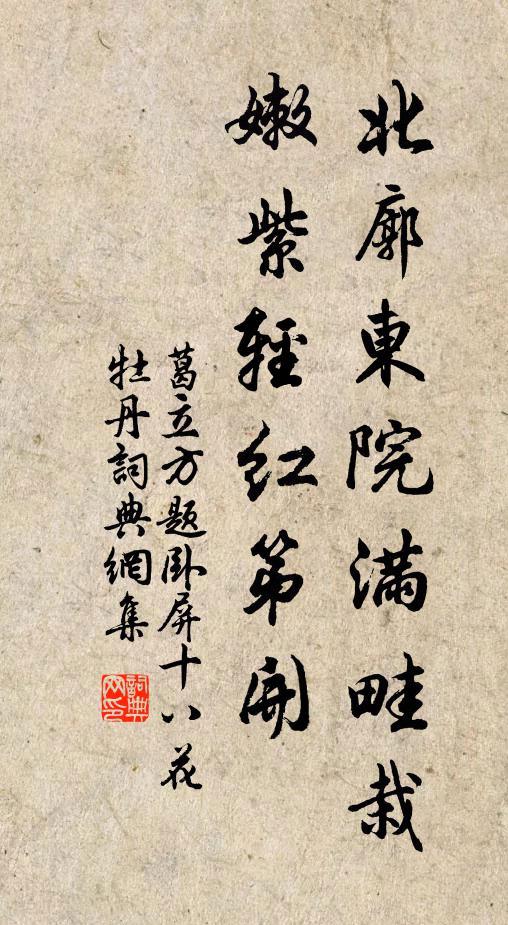 北廓東院滿畦栽
嫩紫輕紅第開
葛立方題卧屏十八花
牡丹詞典網集
詞典網印